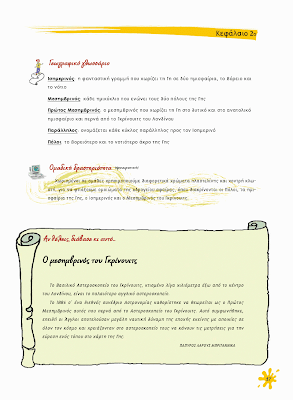 Κεφάλαιο 2ο
Γεωγραφικό γλωσσάριο
Ισημερινός: η φανταστική γραμμή που χωρίζει τη Γη σε δύο ημισφαίρια, το Βόρειο και
το νότιο
Μεσημβρινός: κάθε ημικύκλιο που ενώνει τους δύο πόλους της Γης
Πρώτος Μεσημβρινός: ο μεσημβρινός που χωρίζει τη Γη στο δυτικό και στο ανατολικό
ημισφαίριο και περνά από το Γκρίνουιτς του Λονδίνου
Παράλληλος: ονομάζεται κάθε κύκλος παράλληλος προς τον Ισημερινό
Πόλοι: το βορειότερο και το νοτιότερο άκρο της Γης
Ομαδική δραστηριότητα
Χωρισμένοι σε ομάδες χρησιμοποιούμε διαφορετικά χρώματα πλαστελίνης και
να φτιάξουμε ομοιώματα της υδρογείου σφαίρας, όπου διακρίνονται οι Πόλοι, τα ημι-
σφαίρια της Γης, ο Ισημερινός και ο Μεσημβρινός του Γκρίνουιτς.
Αν θέλεις, διάβασε κι αυτό...
Ο μεσημβρινός του Γκρίνουιτς
Το Βασιλικό Αστεροσκοπείο του Γκρίνουιτς, χτισμένο λίγα χιλιόμετρα έξω από το κέντρο
του Λονδίνου, είναι το παλαιότερο αγγλικό αστεροσκοπείο.
Το 1884 σ' ένα διεθνές συνέδριο Αστρονομίας καθορίστηκε να θεωρείται ως ο Πρώτος
Μεσημβρινός αυτός που περνά από το Αστεροσκοπείο του Γκρίνουιτς. Αυτό συμφωνήθηκε,
επειδή οι Άγγλοι αποτελούσαν μεγάλη ναυτική δύναμη της εποχής εκείνης με αποικίες σε
όλον τον κόσμο και χρειάζονταν στο αστεροσκοπείο τους να κάνουν τις μετρήσεις για την
εύρεση ενός τόπου στο χάρτη της Γης.
ΠΑΠΥΡΟΣ ΛΑΡΟΥΣ ΜΠΡΙΤΑΝΝΙΚΑ